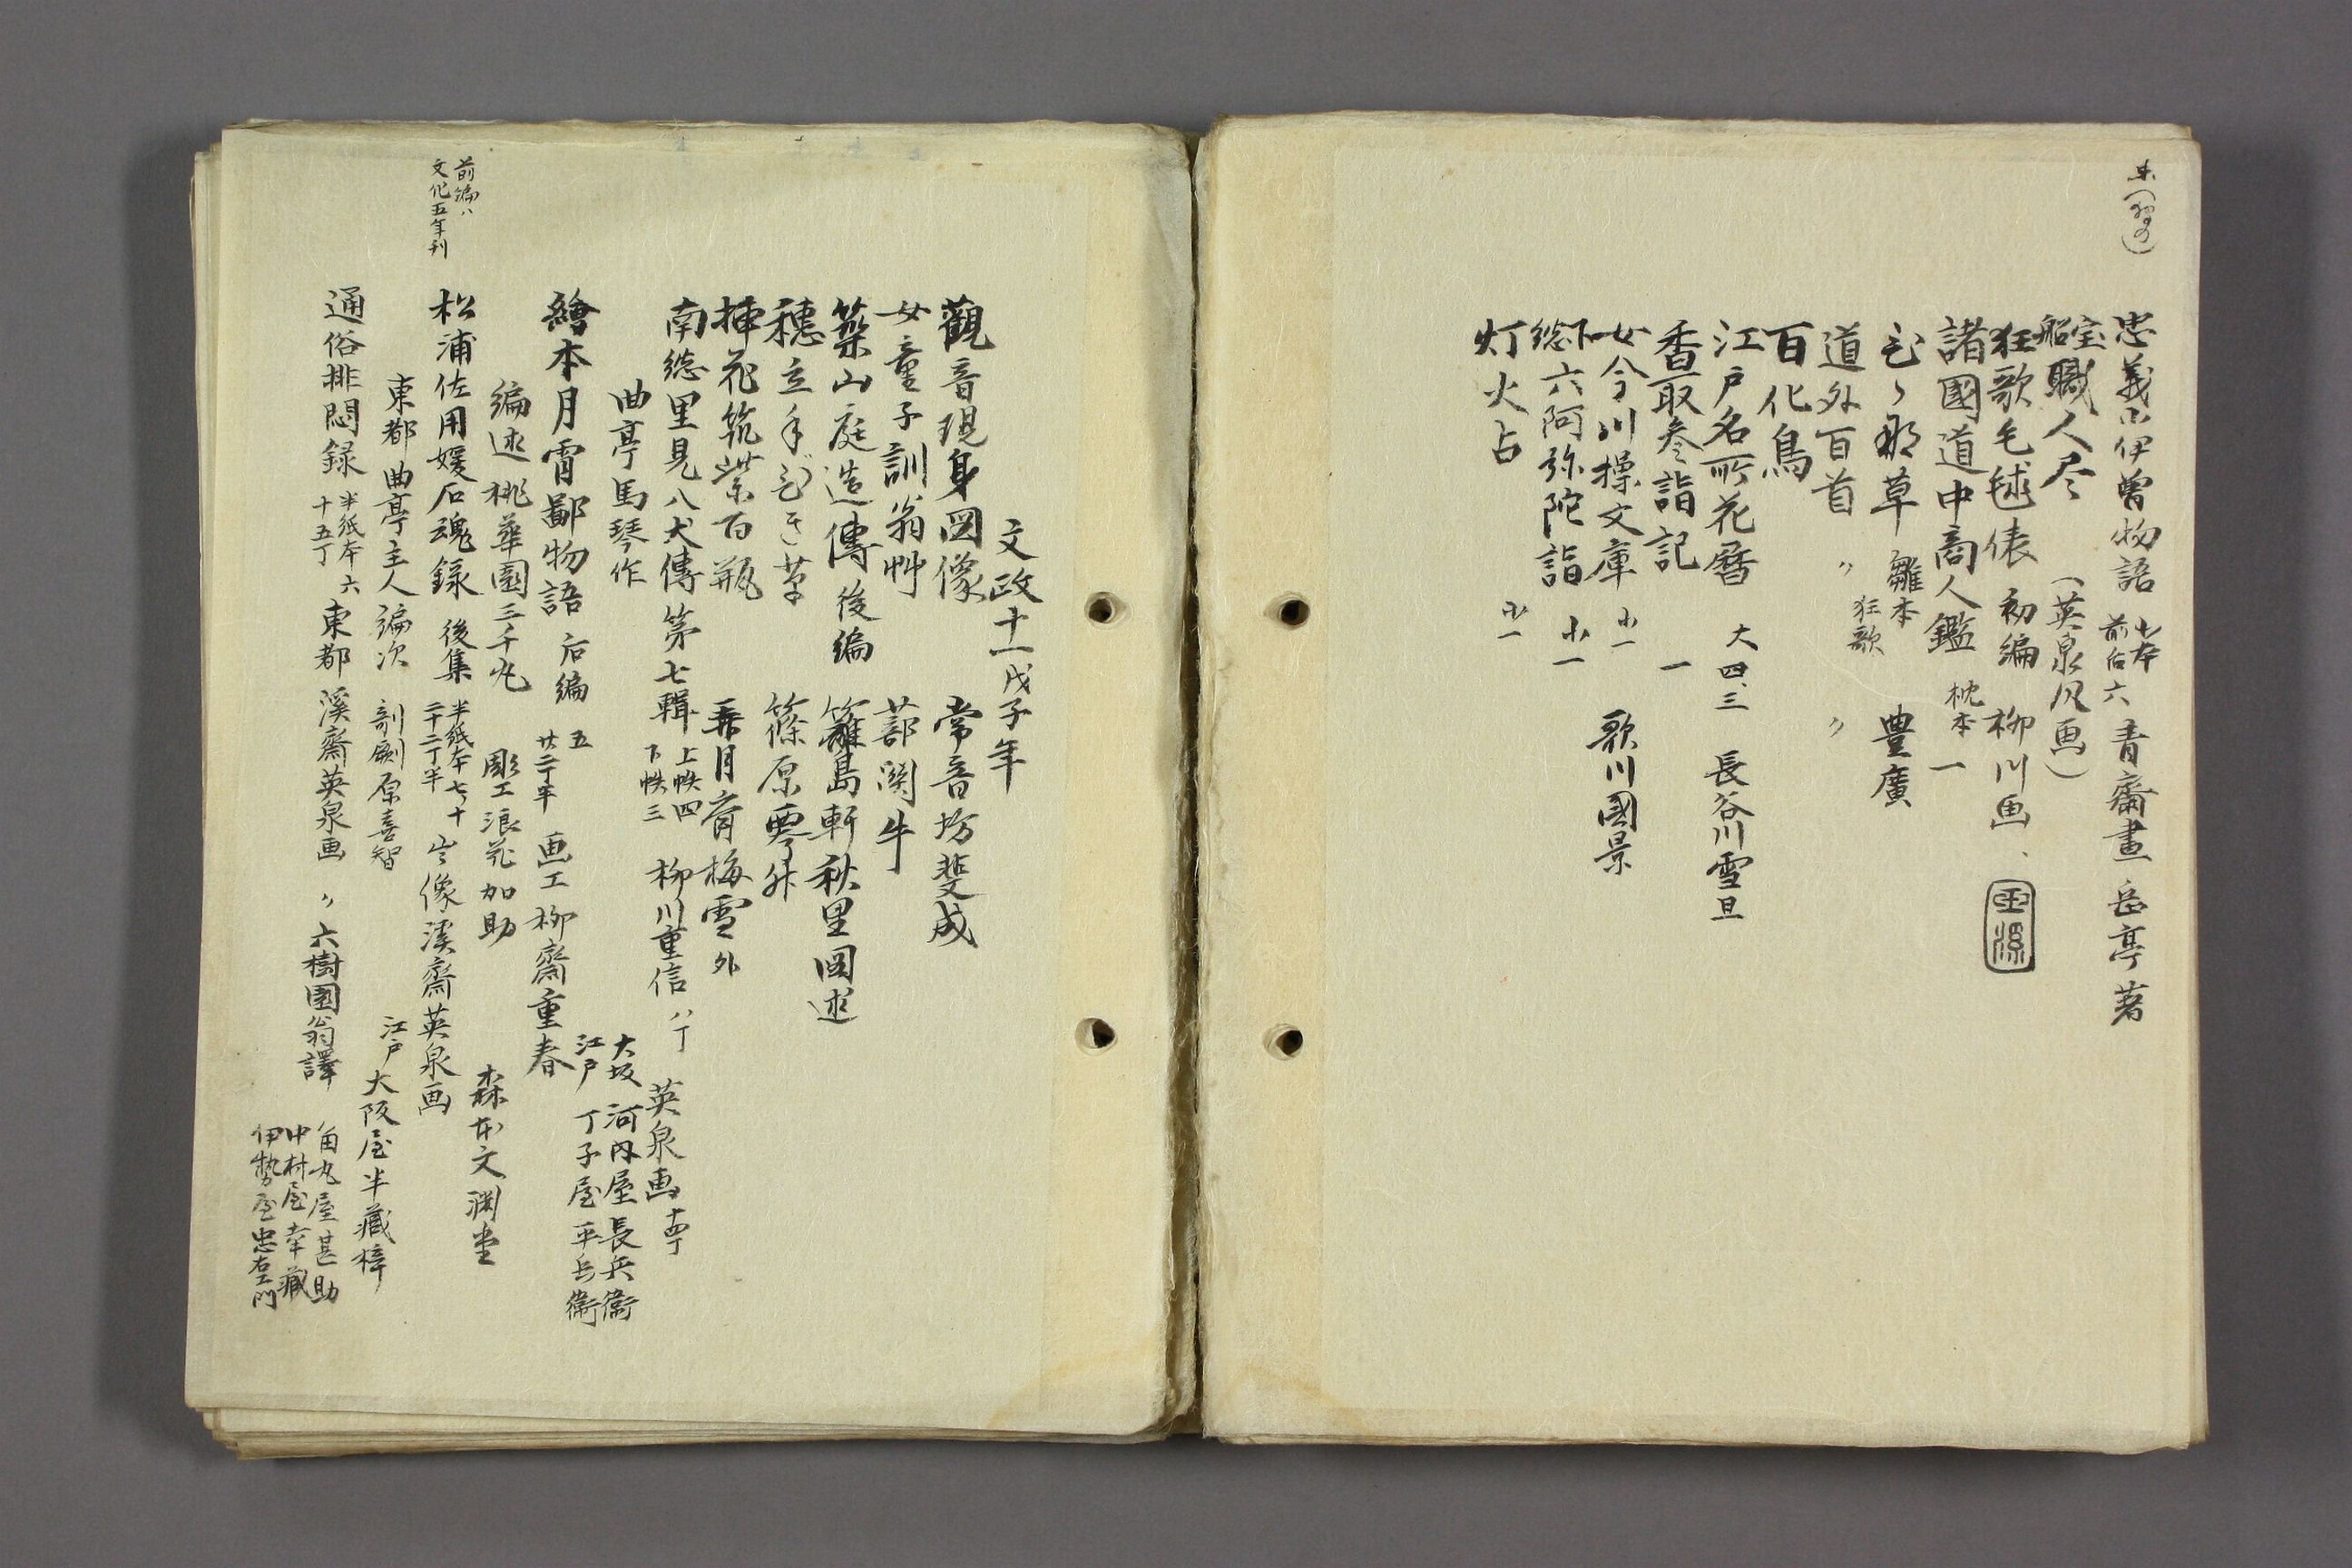 忠義水伊曽物語 七本 前后六 青齋畫 岳亭著
宝船職人尽 (英泉風画)
狂歌毛毬俵 初編 柳川画
諸國道中商人鑑 枕本 一
那草 雛本 豊廣
道外百首 〃 狂歌 〃
百化鳥
江戸名所花暦 大四、三 長谷川雪旦
香取参詣記 一
女今川操文庫 小一 歌川國景
下総六阿弥陀詣 小一
灯火占 小一
文政十一戊子年
觀音現身図像 常音坊斐成
女童子訓翁艸 蔀関牛
築山庭造傳 後編 籬島軒秋里図述
穂立手びき草 篠原
挿花筑紫百瓶 弄月齋梅雪外
南総里見八犬傳 第七輯 上帙四 下帙三 柳川重信 八丁 英泉画 十四丁
曲亭馬琴作 大坂 河内屋長兵衛 江戸 丁子屋平兵衛
繪本月宵鄙物語 后編 五 廿二半 画工柳齋重春
編述桃華園三千丸 彫工浪花加助 森本文渕堂
前編ハ 文化五年刊
松浦佐用媛石魂録 後集 半紙本七 十 二十二丁半 像渓齋英泉画
東都曲亭主人編次 剞劂原喜智 江戸大阪屋半藏梓
通俗排悶録 半紙本六 十五丁 東都 溪齋英泉画 〃六樹園翁譯 角丸屋甚助 中村屋幸藏 伊勢屋忠右エ門